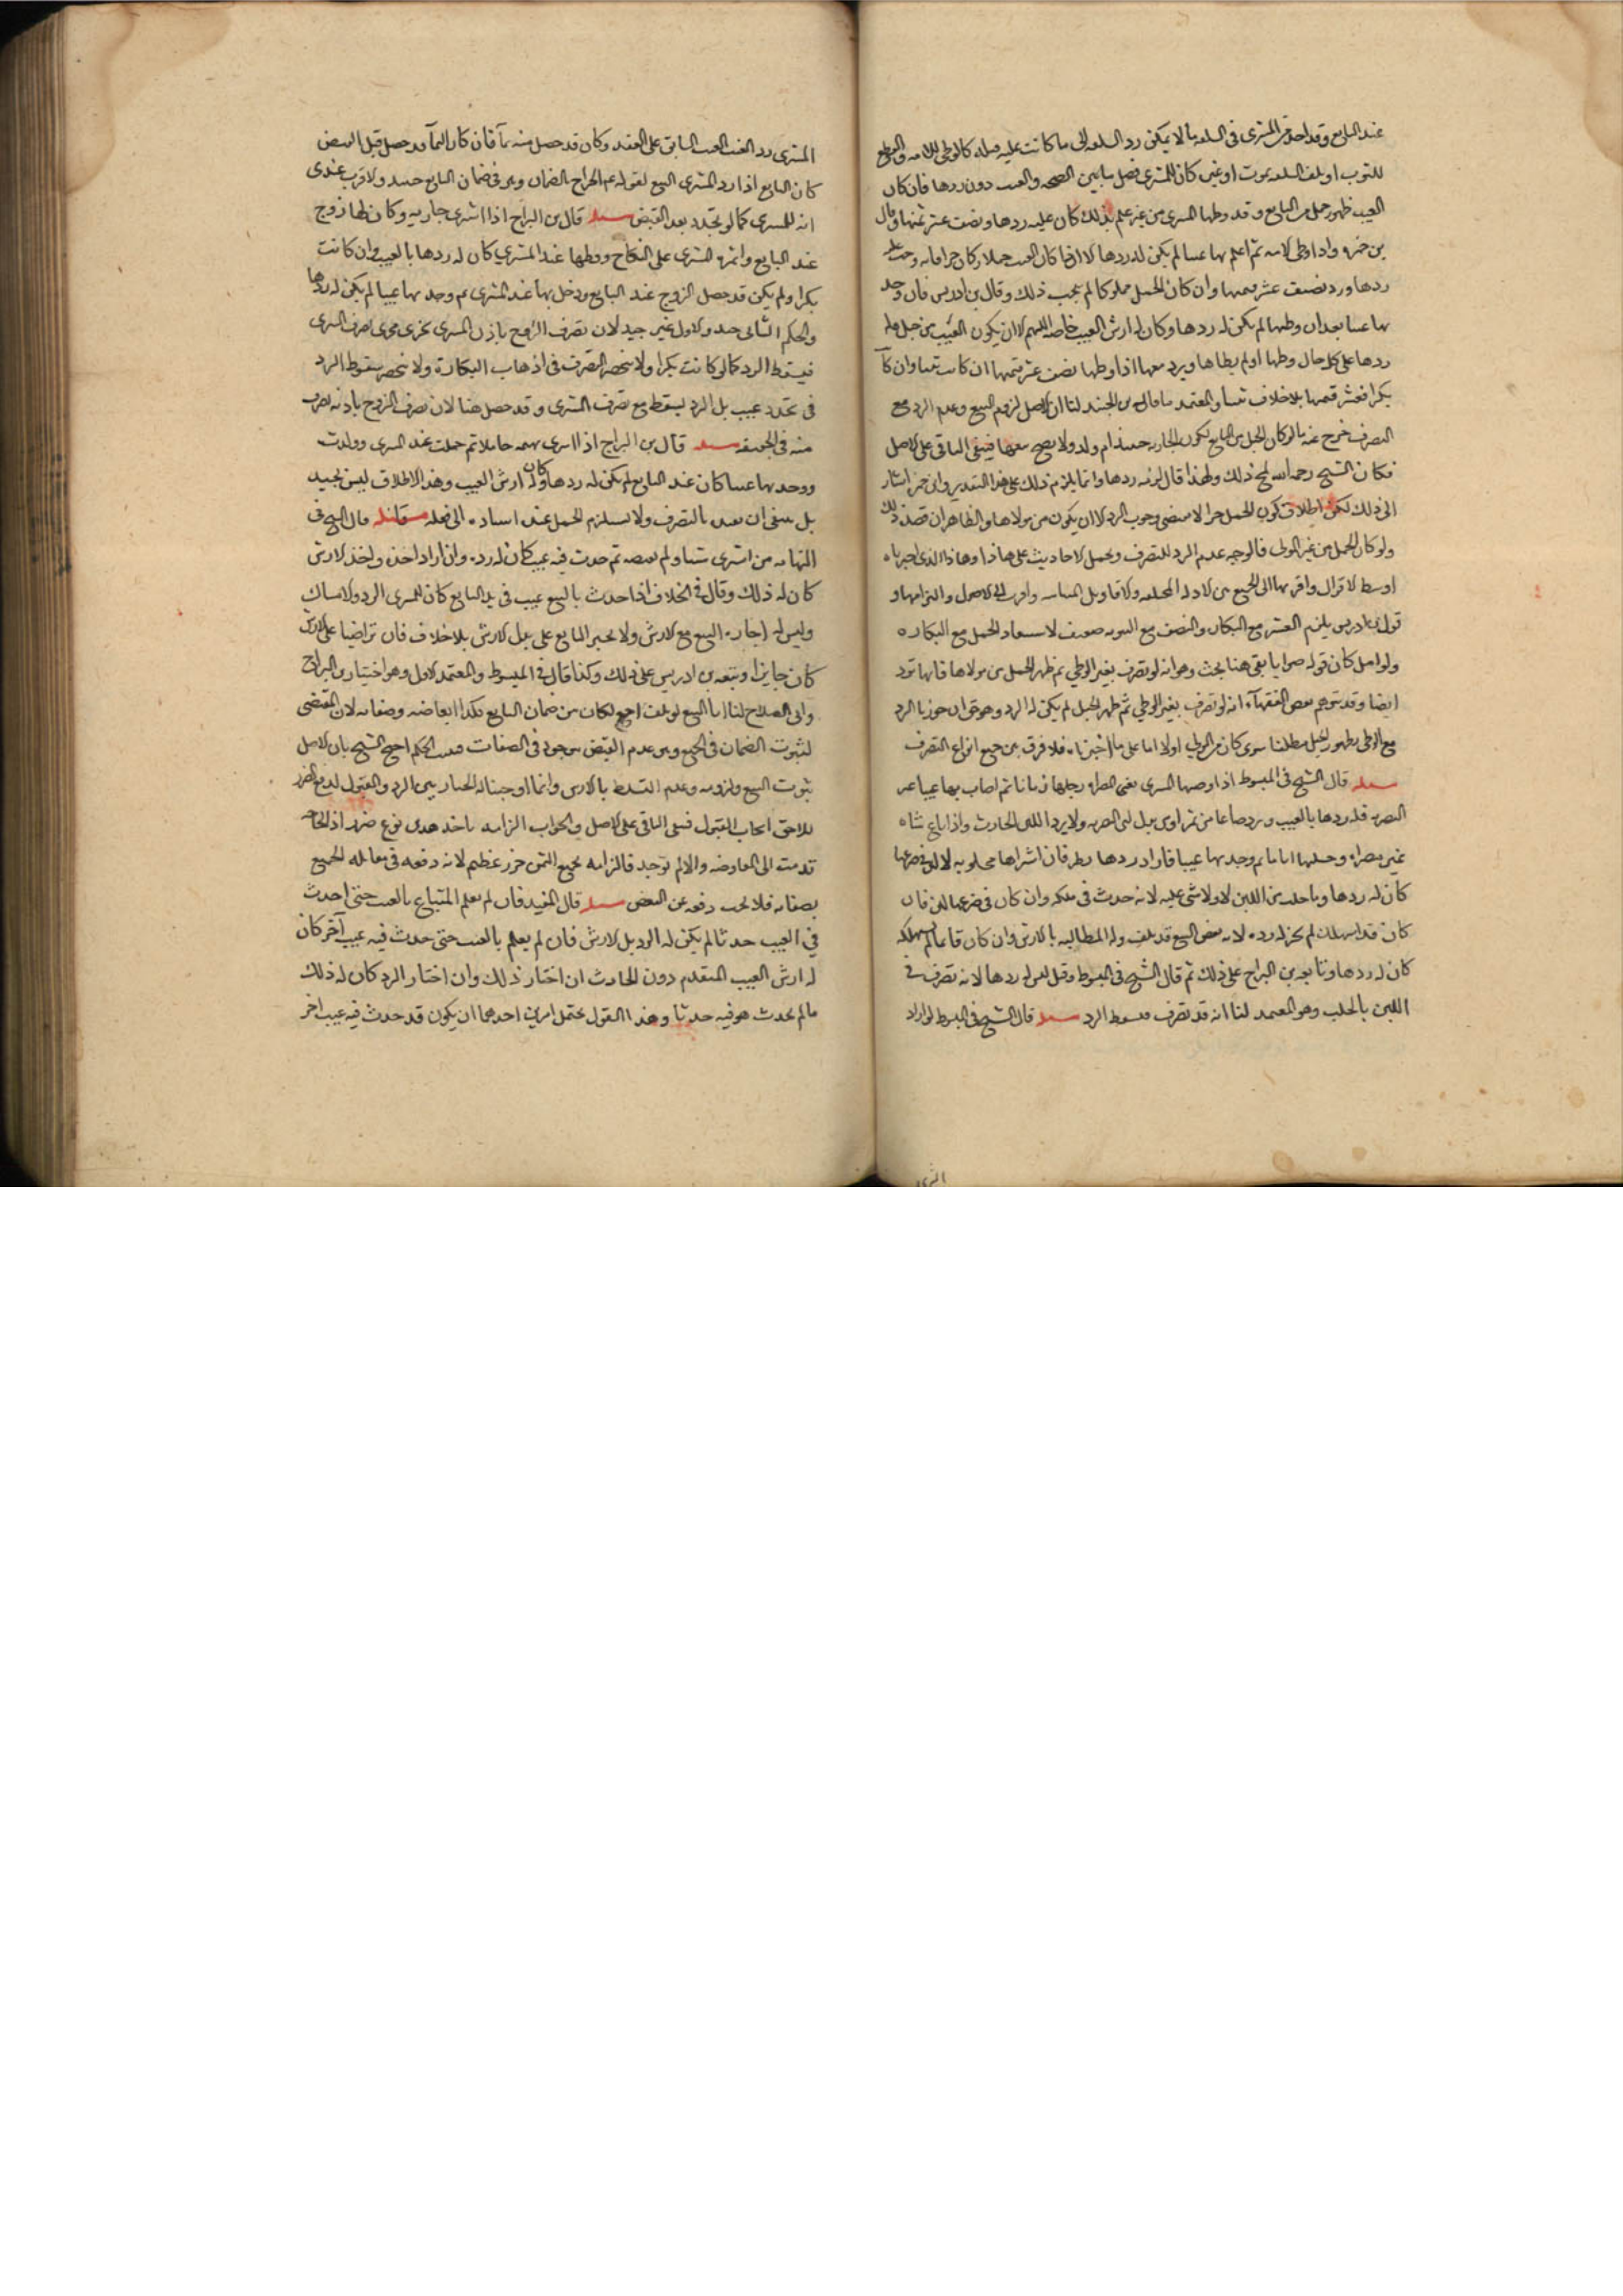 عند البايع وقد احدث المشتري في السلعه ما لا يمكن رد السلعه الى ما كانت عليه قبله كالوطي للامه والقطع
للثوب او تلف السلعه بموت او غيره كان للمشتري فضل ما بين الصحه والعيب دون ردها فان كان
العيب ظهور حمل من البايع وقد وطيها المشتري من غير علم بذلك كان عليه ردها ونصف عشر ثمنها وقال
بن حمزه واذا وطي الامه ثم اعلم بها عيبا لم يكن له ردها الا اذا كان العيب حملا وكان حرا فانه وجب عليه
ردها ورد نصف عشر قيمتها وان كان الحمل مملوكا لم يجب ذلك وقال بن ادريس فان وجد
بها عيبا بعد ان وطيها لم يكن له ردها وكان له ارش العيب خاصه اللهم الا ان يكون العيب من حبل فله
ردها على كل حال وطيها او لم يطاها ويرد معها اذا وطيها نصف عشر قيمتها ان كانت ثيبا وان كانت
بكرا فعشر قيمتها بلا خلاف بيننا والمعتمد ما قاله بن الجنيد لنا ان الاصل لزوم البيع وعدم الرد مع
التصرف خرج عنه ما لو كان الحبل من البايع لكون الجاريه حينئذ ام ولد ولا يصح بيعها فيبقى الباقي على الاصل
فكان الشيخ رحمه الله لمح ذلك ولهذا قال لزمه ردها وانما يلزم ذلك على هذا التقدير وابن حمزه اشار
الى ذلك لكن اطلاق كون الحمل حرا لا يقتضي وجوب الرد الا ان يكون من مولاها والظاهر ان قصده ذلك
ولو كان الحمل من غير المولى فالوجه عدم الرد للتصرف وتحمل الاحاديث على هاذا وهاذا الذي اخترناه
اوسط الاقوال واقربها الى الجمع بين الادله المختلفه والاقاويل المتباينه واقرب الى الاصول والتزامها و
قول بن ادريس يلزم العشر مع البكاره والنصف مع الثيوبه ضعيف لاستبعاد الحمل مع البكاره
ولو امل كان قوله صوابا بقي هنا بحث وهو انه لو تصرف بغير الوطي ثم ظهر الحمل من مولاها فانها ترد
ايضا وقد توهم بعض الفقهآء انه لو تصرف بغير الوطي ثم ظهر الحبل لم يكن له الرد وهو خطا جوزنا الرد
مع الوطي بظهور الحبل مطلقا سوى كان من المولى او لا اما على ما اخترناه فلا فرق بين جميع انواع التصرف
مسله قال الشيخ في المبسوط اذا رضيها المشتري يعني المصراه وحلبها زمانا ثم اصاب بها عيبا غير
التصريه فله ردها بالعيب ويرد صاعا من تمر او بر بدل لبن التصريه ولا يرد اللبن الحادث واذا باع شاه
غير مصراه وحلبها اياما ثم وجد بها عيبا فاراد ردها نظر فان اشتراها محلوبه لا لبن في ضرعها
كان له ردها وما حلب من اللبن لا ولا شي عليه لانه حدث في ملكه وان كان في ضرعها لبن فان
كان قد استهلك لم يجز له رده لانه بعض المبيع قد تلف وله المطالبه بالارش وان كان قايما لم يستهلكه
كان له ردها وتابعه بن البراج على ذلك ثم قال الشيخ في المبسوط وقيل ليس له ردها لانه تصرف في
اللبن بالحلب وهو المعتمد لنا انه قد تصرف فسقط الرد مسله قال الشيخ في المبسوط لو اراد
المشتري رد العبد العيب السابق على العقد وكان قد حصل منه نمآ فان كان النمآ قد حصل قبل القبض
كان البايع اذا رد المشتري البيع لقوله عم الخراج بالضمان وهو في ضمان البايع حينئذ والاقرب عندي
انه للمشتري كما لو تجدد بعد القبض مسله قال بن البراج اذا اشترى جاريه وكان لها زوج
عند البايع واقره المشتري على النكاح ووطيها عند المشتري كان له ردها بالعيب وان كانت
بكرا ولم يكن قد حصل الزوج عند البايع ودخل بها عند المشتري ثم وجد بها عيبا لم يكن له ردها
والحكم الثاني جيد والاول غير جيد لان تصرف الزوج باذن المشتري يجري مجرى تصرف المشتري
فيسقط الرد كما لو كانت بكرا ولا ينحصر التصرف في اذهاب البكارة ولا ينحصر سقوط الرد
في تجدد عيب بل الرد يسقط مع تصرف المشتري وقد حصل هنا لان تصرف الزوج باذنه تصرف
منه في الحقيقه مسله قال بن البراج اذا اشترى بهيمه حاملا ثم حملت عند المشتري وولدت
ووجد بها عيبا كان عند البايع لم يكن له ردها وكان له ارش العيب وهذا الاطلاق ليس بجيد
بل ينبغي ان يقيد بالتصرف ولا يستلزم الحمل عند استناده الى فعله مسله قال الشيخ في
النهايه من اشترى شيئا ولم يقبضه ثم حدث فيه عيب كان له رده وان اراد اخذه واخذ الارش
كان له ذلك وقال في الخلاف اذا حدث بالمبيع عيب في يد البايع كان للمشتري الرد والامساك
وليس له اجازه البيع مع الارش ولا يجبر البايع على بذل الارش بلا خلاف فان تراضيا على الارش
كان جايزا وتبعه بن ادريس على ذلك وكذا قال في المبسوط والمعتمد الاول وهو اختيار بن البراج
وابي الصلاح لنا ان المبيع لو تلف اجمع لكان من ضمان البايع فكذا ابعاضه وصفاته لان المقتضي
لثبوت الضمان في الجميع وهو عدم القبض موجود في الصفات فيثبت الحكم احتج الشيخ بان الاصل
ثبوت البيع ولزومه وعدم التسلط بالارش وانما اوجبنا له الخيار بين الرد والقبول لدفع الضرر
اللاحق بايجاب القبول فيبقى الباقي على الاصل والجواب الزامه باخذ هذه نوع ضرر اذ الحاجه
قد مست الى المعاوضه والا لم توجد فالزامه بجميع الثمن ضرر عظيم لانه دفعه في مقابله الجميع
بصفاته فلا يجب دفعه عن البعض مسله قال المفيد فان لم يعلم المبتاع بالعيب حتى احدث
في العيب حدثا لم يكن له الرد بل الارش فان لم يعلم بالعيب حتى حدث فيه عيب آخر كان
له ارش العيب المتقدم دون الحادث ان اختار ذلك وان اختار الرد كان له ذلك
ما لم يحدث هو فيه حدثا وهذا القول يحتمل امرين احدهما ان يكون قد حدث فيه عيب اخر